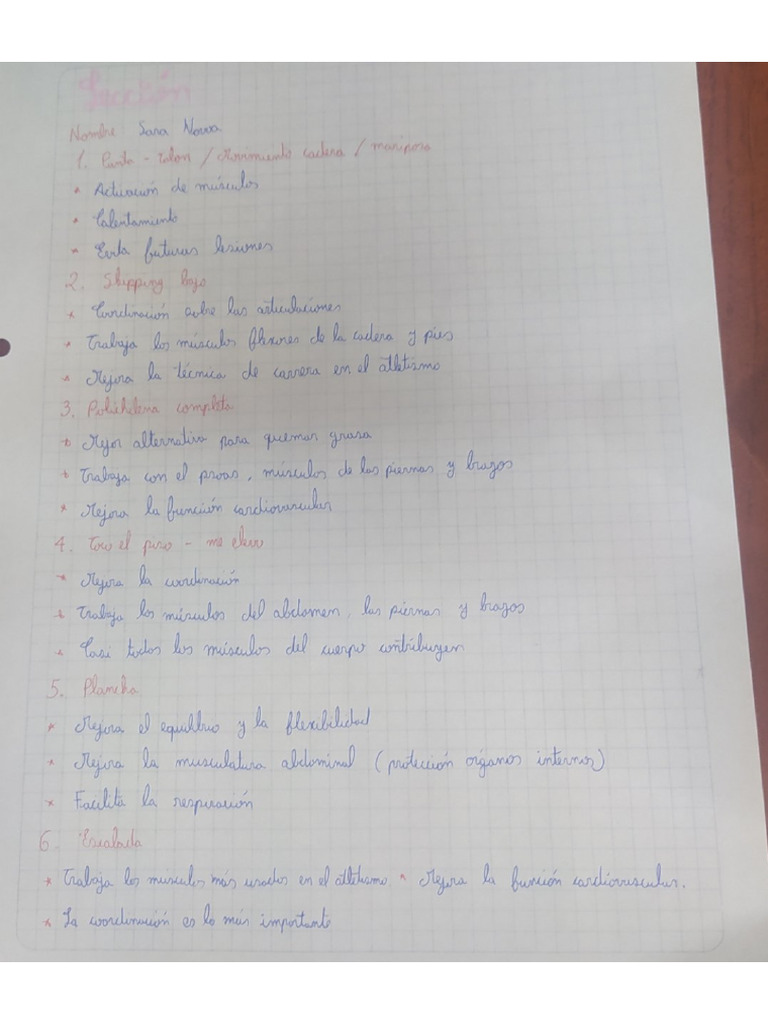 Sección
Nombre Sara Novoa
1. Punta - talon / Movimiento cadera / mariposa
* Activación de músculos
* Calentamiento
* Evita futuras lesiones
2. Skipping bajo
* Coordinación sobre las articulaciones
* Trabaja los músculos flexores de la cadera y pies
* Mejora la técnica de carrera en el atletismo
3. Polichilena completa
* Mejor alternativa para quemar grasa
* Trabaja con el psoas, músculos de las piernas y brazos
* Mejora la función cardiovascular
4. Toco el piso - me elevo
* Mejora la coordinación
* Trabaja los músculos del abdomen, las piernas y brazos
* Casi todos los músculos del cuerpo contribuyen
5. Plancha
* Mejora el equilibrio y la flexibilidad
* Mejora la musculatura abdominal (protección órganos internos)
* Facilita la respiración
6. Escalada
* Trabaja los músculos más usados en el atletismo * Mejora la función cardiovascular.
* La coordinación es lo más importante